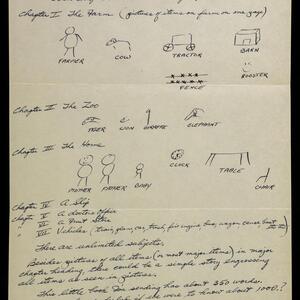 Chapter I The Farm (pictures of items on farm on one page)
FARMER COW TRACTOR BARN
FENCE ROOSTER
Chapter II The Zoo
TIGER LION GIRAFFE ELEPHANT
Chapter III The Home
MOTHER FATHER BABY CLOCK TABLE CHAIR
Chapter IV A Ship
Chapter V A Doctors Office
VI A Fruit Store
VII Vehicles (train, plane, car, truck, fire engine, bus, wagon
There are unlimited subjects.
Besides pictures of all items (or most major items) in major
chapter heading, there could be a simple story
all items as seen in pictures.
This little book I'm sending has about 350 words.
to know about 1000?